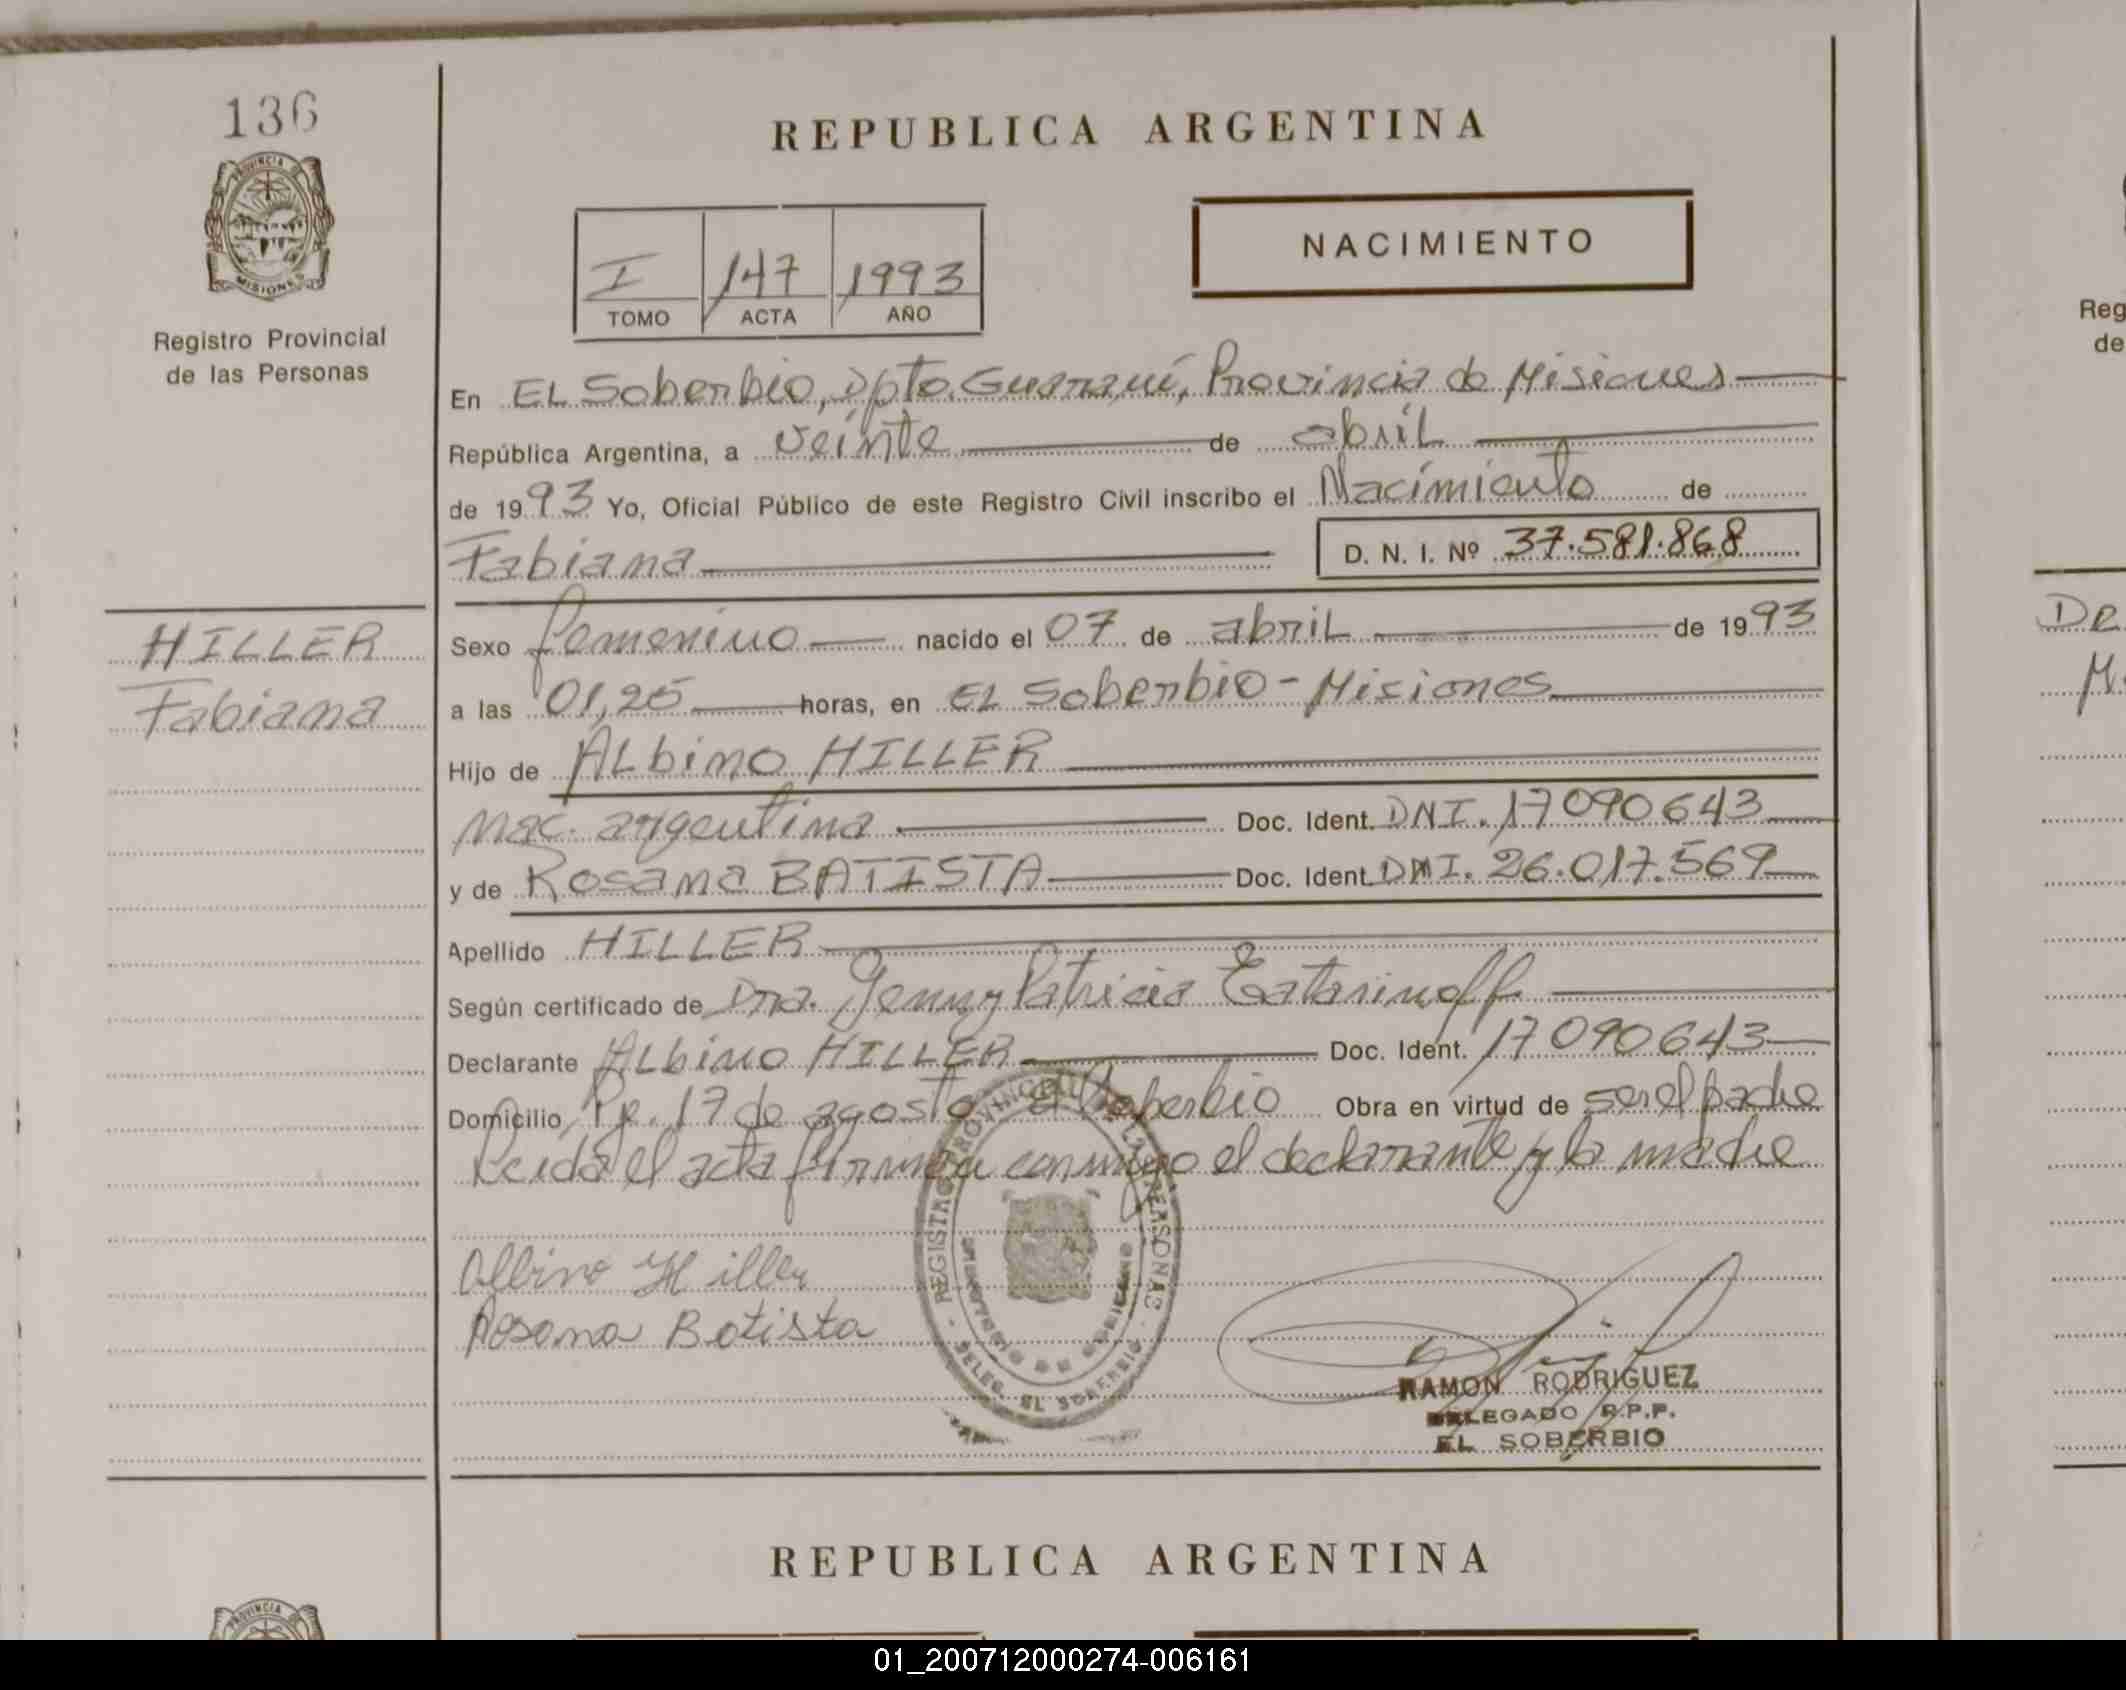 136
PROVINCIA DE
MISIONES
Registro Provincial
de las Personas
HILLER
Fabiana
REPUBLICA ARGENTINA
I 147 1993
TOMO ACTA AÑO
NACIMIENTO
En EL Soberbio, Dpto. Guaraní, Provincia de Misiones
República Argentina, a veinte de abril
de 1993 Yo, Oficial Público de este Registro Civil inscribo el Nacimiento de
Fabiana D. N. I. Nº 37.581.868
Sexo femenino nacido el 07 de abril de 1993
a las 01,25 horas, en EL Soberbio - Misiones
Hijo de ALbino HILLER
Nac. argentina Doc. Ident. DNI. 17090643
y de Rosana BATISTA Doc. Ident. DNI. 26.017.569
Apellido HILLER
Según certificado de Dra. Jenny Patricia
Declarante ALbino HILLER Doc. Ident. 17090643
Domicilio 17 de agosto El Soberbio Obra en virtud de ser el padre
Leida el acta firman conmigo el declarante y la madre
Albino Hiller
Rosana Batista
REGISTRO PROVINCIAL DE LAS PERSONAS
DELEG. EL SOBERBIO
RAMON RODRIGUEZ
DELEGADO R.P.P.
EL SOBERBIO
REPUBLICA ARGENTINA
PROVINCIA DE
Reg
de
De
01_200712000274-006161